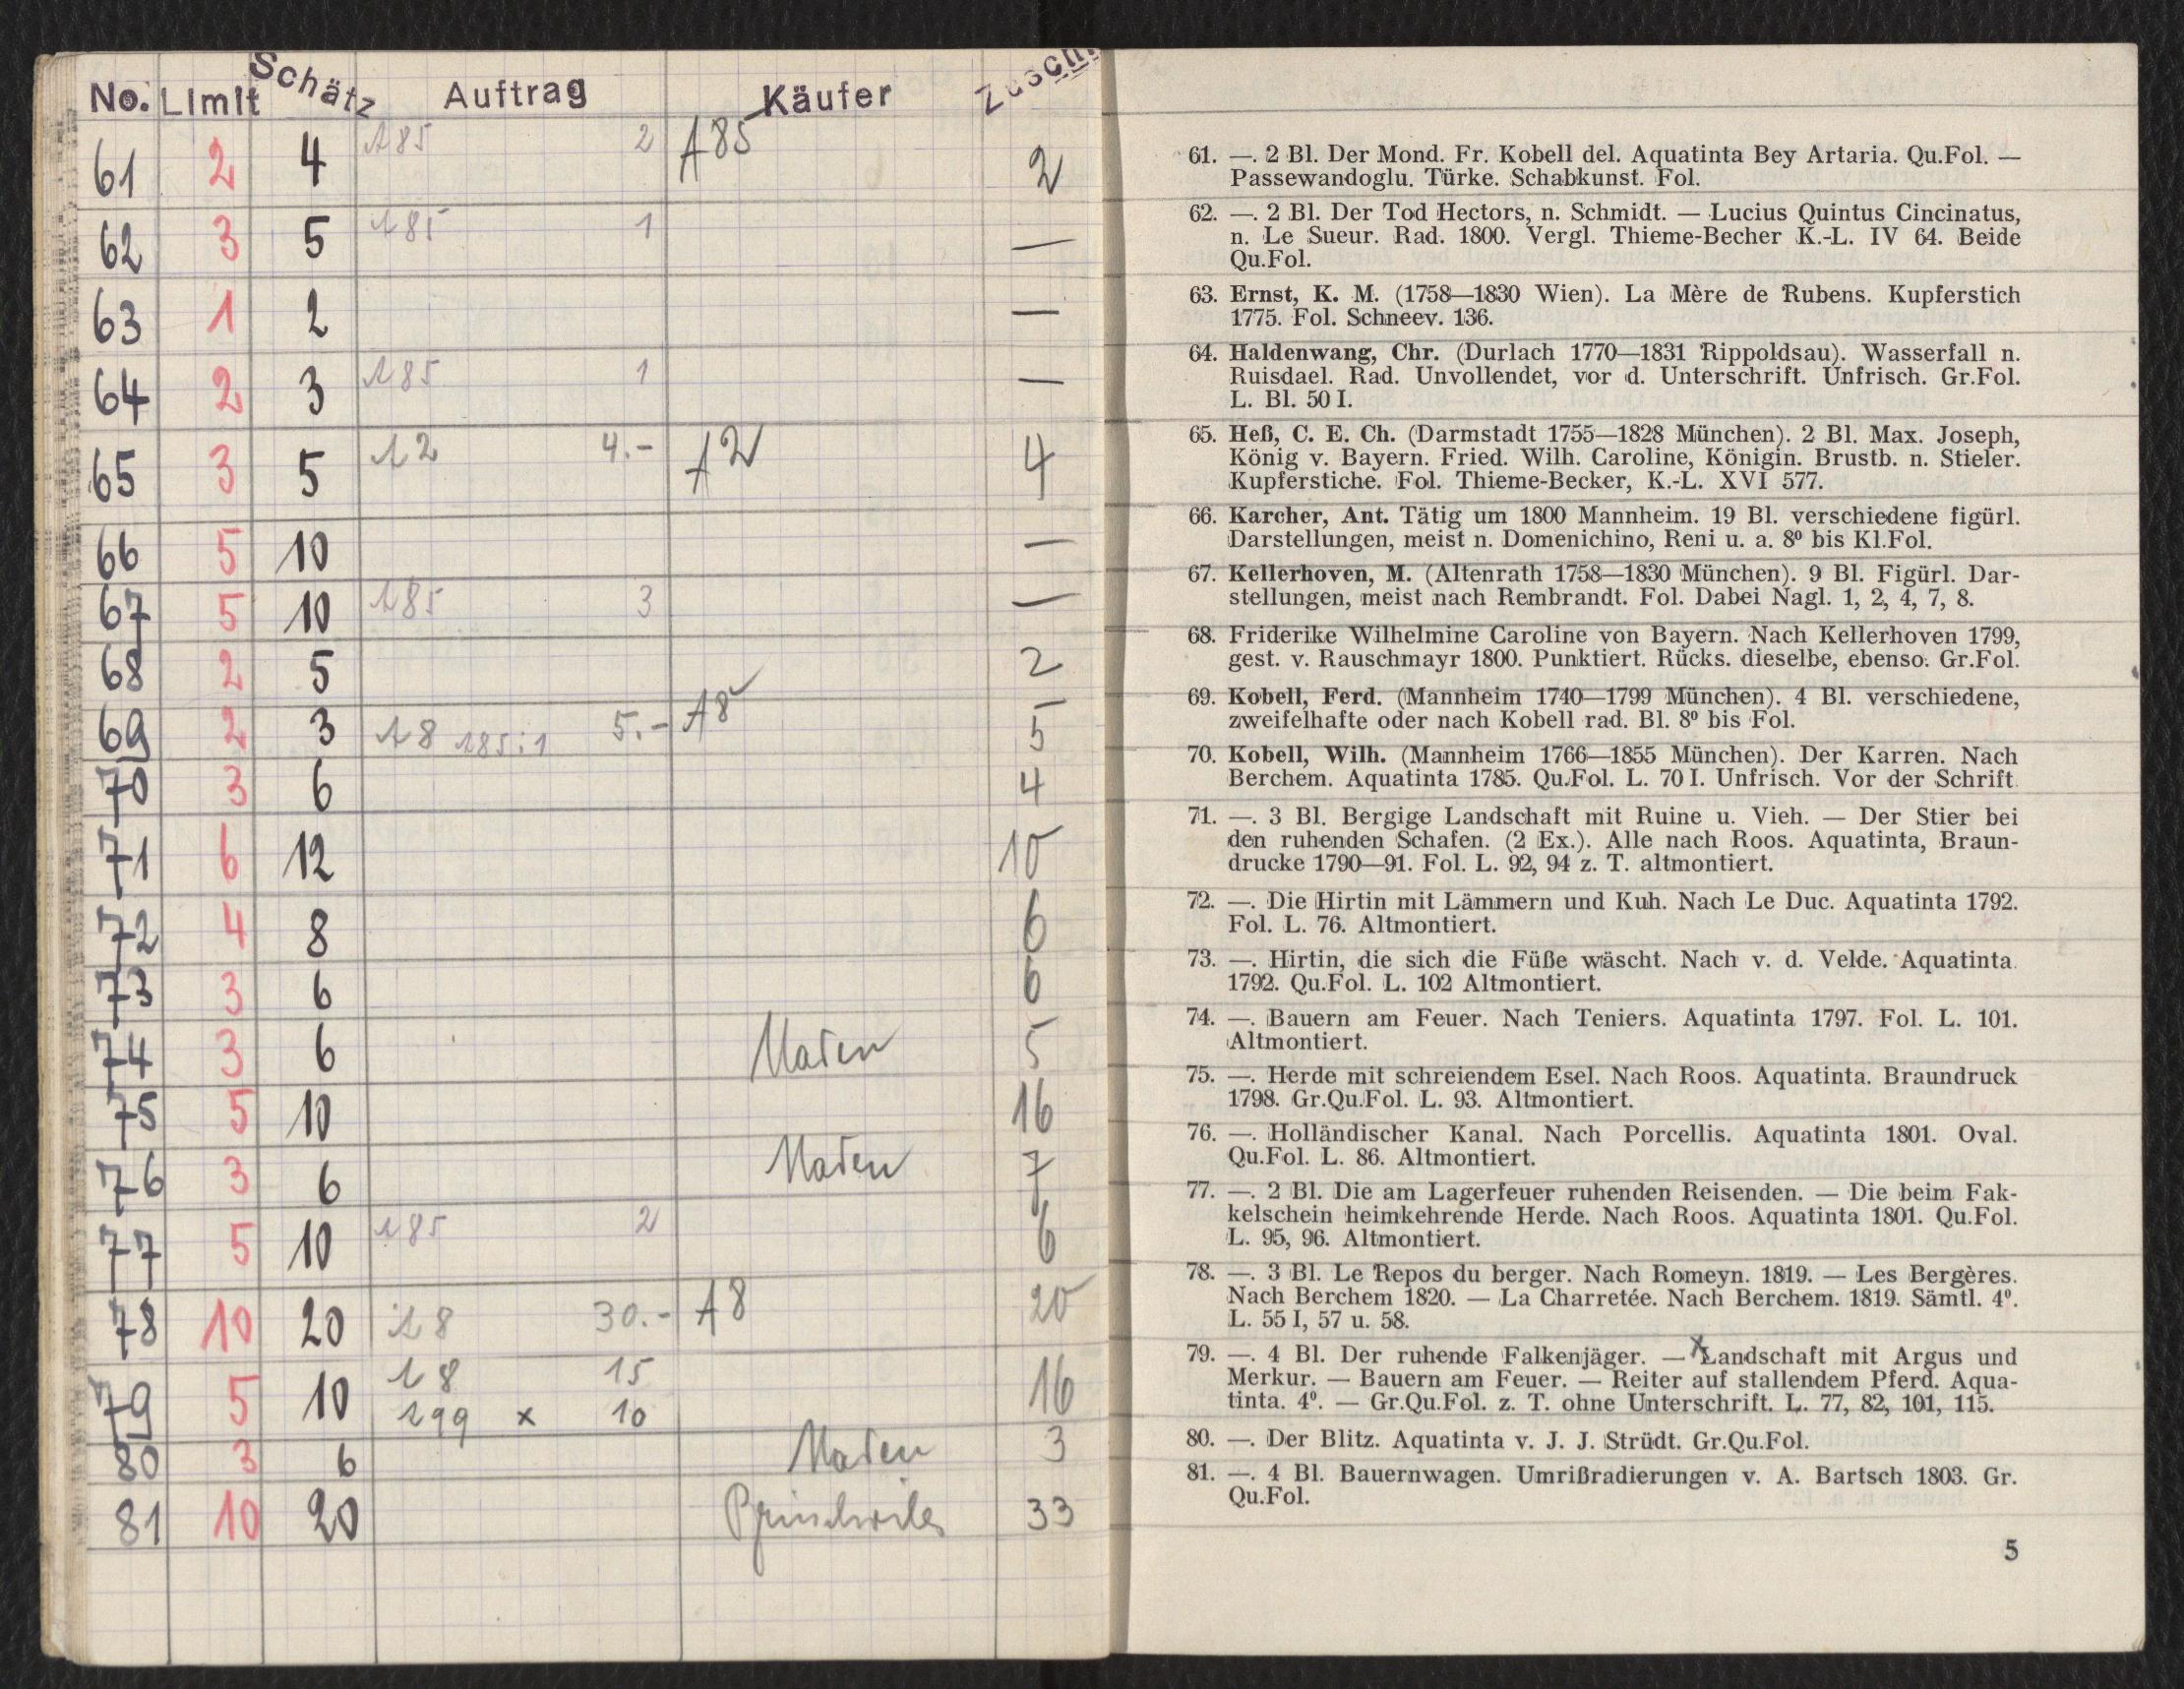 No. Limit Schätz Auftrag Käufer Zuschl.
61 2 4 A85 2 A85 2
62 3 5 A85 1 —
63 1 2 —
64 2 3 A85 1 —
65 3 5 A2 4.- A2 4
66 5 10 —
67 5 10 A85 3 —
68 2 5 2
69 2 3 A8 A85:1 5.- A8 5
70 3 6 4
71 6 12 10
72 4 8 6
73 3 6 6
74 3 6 5
75 5 10 16
76 3 6 7
77 5 10 A85 2 6
78 10 20 A8 30.- A8 20
79 5 10 A8 15 16
A99 x 10
80 3 6 3
81 10 20 33
61. —. 2 Bl. Der Mond. Fr. Kobell del. Aquatinta Bey Artaria. Qu.Fol. —
Passewandoglu. Türke. Schabkunst. Fol.
62. —. 2 Bl. Der Tod Hectors, n. Schmidt. — Lucius Quintus Cincinatus,
n. Le Sueur. Rad. 1800. Vergl. Thieme-Becher K.-L. IV 64. Beide
Qu.Fol.
63. Ernst, K. M. (1758—1830 Wien). La Mère de Rubens. Kupferstich
1775. Fol. Schneev. 136.
64. Haldenwang, Chr. (Durlach 1770—1831 Rippoldsau). Wasserfall n.
Ruisdael. Rad. Unvollendet, vor d. Unterschrift. Unfrisch. Gr.Fol.
L. Bl. 50 I.
65. Heß, C. E. Ch. (Darmstadt 1755—1828 München). 2 Bl. Max. Joseph,
König v. Bayern. Fried. Wilh. Caroline, Königin. Brustb. n. Stieler.
Kupferstiche. Fol. Thieme-Becker, K.-L. XVI 577.
66. Karcher, Ant. Tätig um 1800 Mannheim. 19 Bl. verschiedene figürl.
Darstellungen, meist n. Domenichino, Reni u. a. 8⁰ bis Kl.Fol.
67. Kellerhoven, M. (Altenrath 1758—1830 München). 9 Bl. Figürl. Dar-
stellungen, meist nach Rembrandt. Fol. Dabei Nagl. 1, 2, 4, 7, 8.
68. Friderike Wilhelmine Caroline von Bayern. Nach Kellerhoven 1799,
gest. v. Rauschmayr 1800. Punktiert. Rücks. dieselbe, ebenso. Gr.Fol.
69. Kobell, Ferd. (Mannheim 1740—1799 München). 4 Bl. verschiedene,
zweifelhafte oder nach Kobell rad. Bl. 8⁰ bis Fol.
70. Kobell, Wilh. (Mannheim 1766—1855 München). Der Karren. Nach
Berchem. Aquatinta 1785. Qu.Fol. L. 70 I. Unfrisch. Vor der Schrift.
71. —. 3 Bl. Bergige Landschaft mit Ruine u. Vieh. — Der Stier bei
den ruhenden Schafen. (2 Ex.). Alle nach Roos. Aquatinta, Braun-
drucke 1790—91. Fol. L. 92, 94 z. T. altmontiert.
72. —. Die Hirtin mit Lämmern und Kuh. Nach Le Duc. Aquatinta 1792.
Fol. L. 76. Altmontiert.
73. —. Hirtin, die sich die Füße wäscht. Nach v. d. Velde. Aquatinta
1792. Qu.Fol. L. 102 Altmontiert.
74. —. Bauern am Feuer. Nach Teniers. Aquatinta 1797. Fol. L. 101.
Altmontiert.
75. —. Herde mit schreiendem Esel. Nach Roos. Aquatinta. Braundruck
1798. Gr.Qu.Fol. L. 93. Altmontiert.
76. —. Holländischer Kanal. Nach Porcellis. Aquatinta 1801. Oval.
Qu.Fol. L. 86. Altmontiert.
77. —. 2 Bl. Die am Lagerfeuer ruhenden Reisenden. — Die beim Fak-
kelschein heimkehrende Herde. Nach Roos. Aquatinta 1801. Qu.Fol.
L. 95, 96. Altmontiert.
78. —. 3 Bl. Le Repos du berger. Nach Romeyn. 1819. — Les Bergères.
Nach Berchem 1820. — La Charretée. Nach Berchem. 1819. Sämtl. 4⁰.
L. 55 I, 57 u. 58.
79. —. 4 Bl. Der ruhende Falkenjäger. — x Landschaft mit Argus und
Merkur. — Bauern am Feuer. — Reiter auf stallendem Pferd. Aqua-
tinta. 4⁰. — Gr.Qu.Fol. z. T. ohne Unterschrift. L. 77, 82, 101, 115.
80. —. Der Blitz. Aquatinta v. J. J. Strüdt. Gr.Qu.Fol.
81. —. 4 Bl. Bauernwagen. Umrißradierungen v. A. Bartsch 1803. Gr.
Qu.Fol.
5